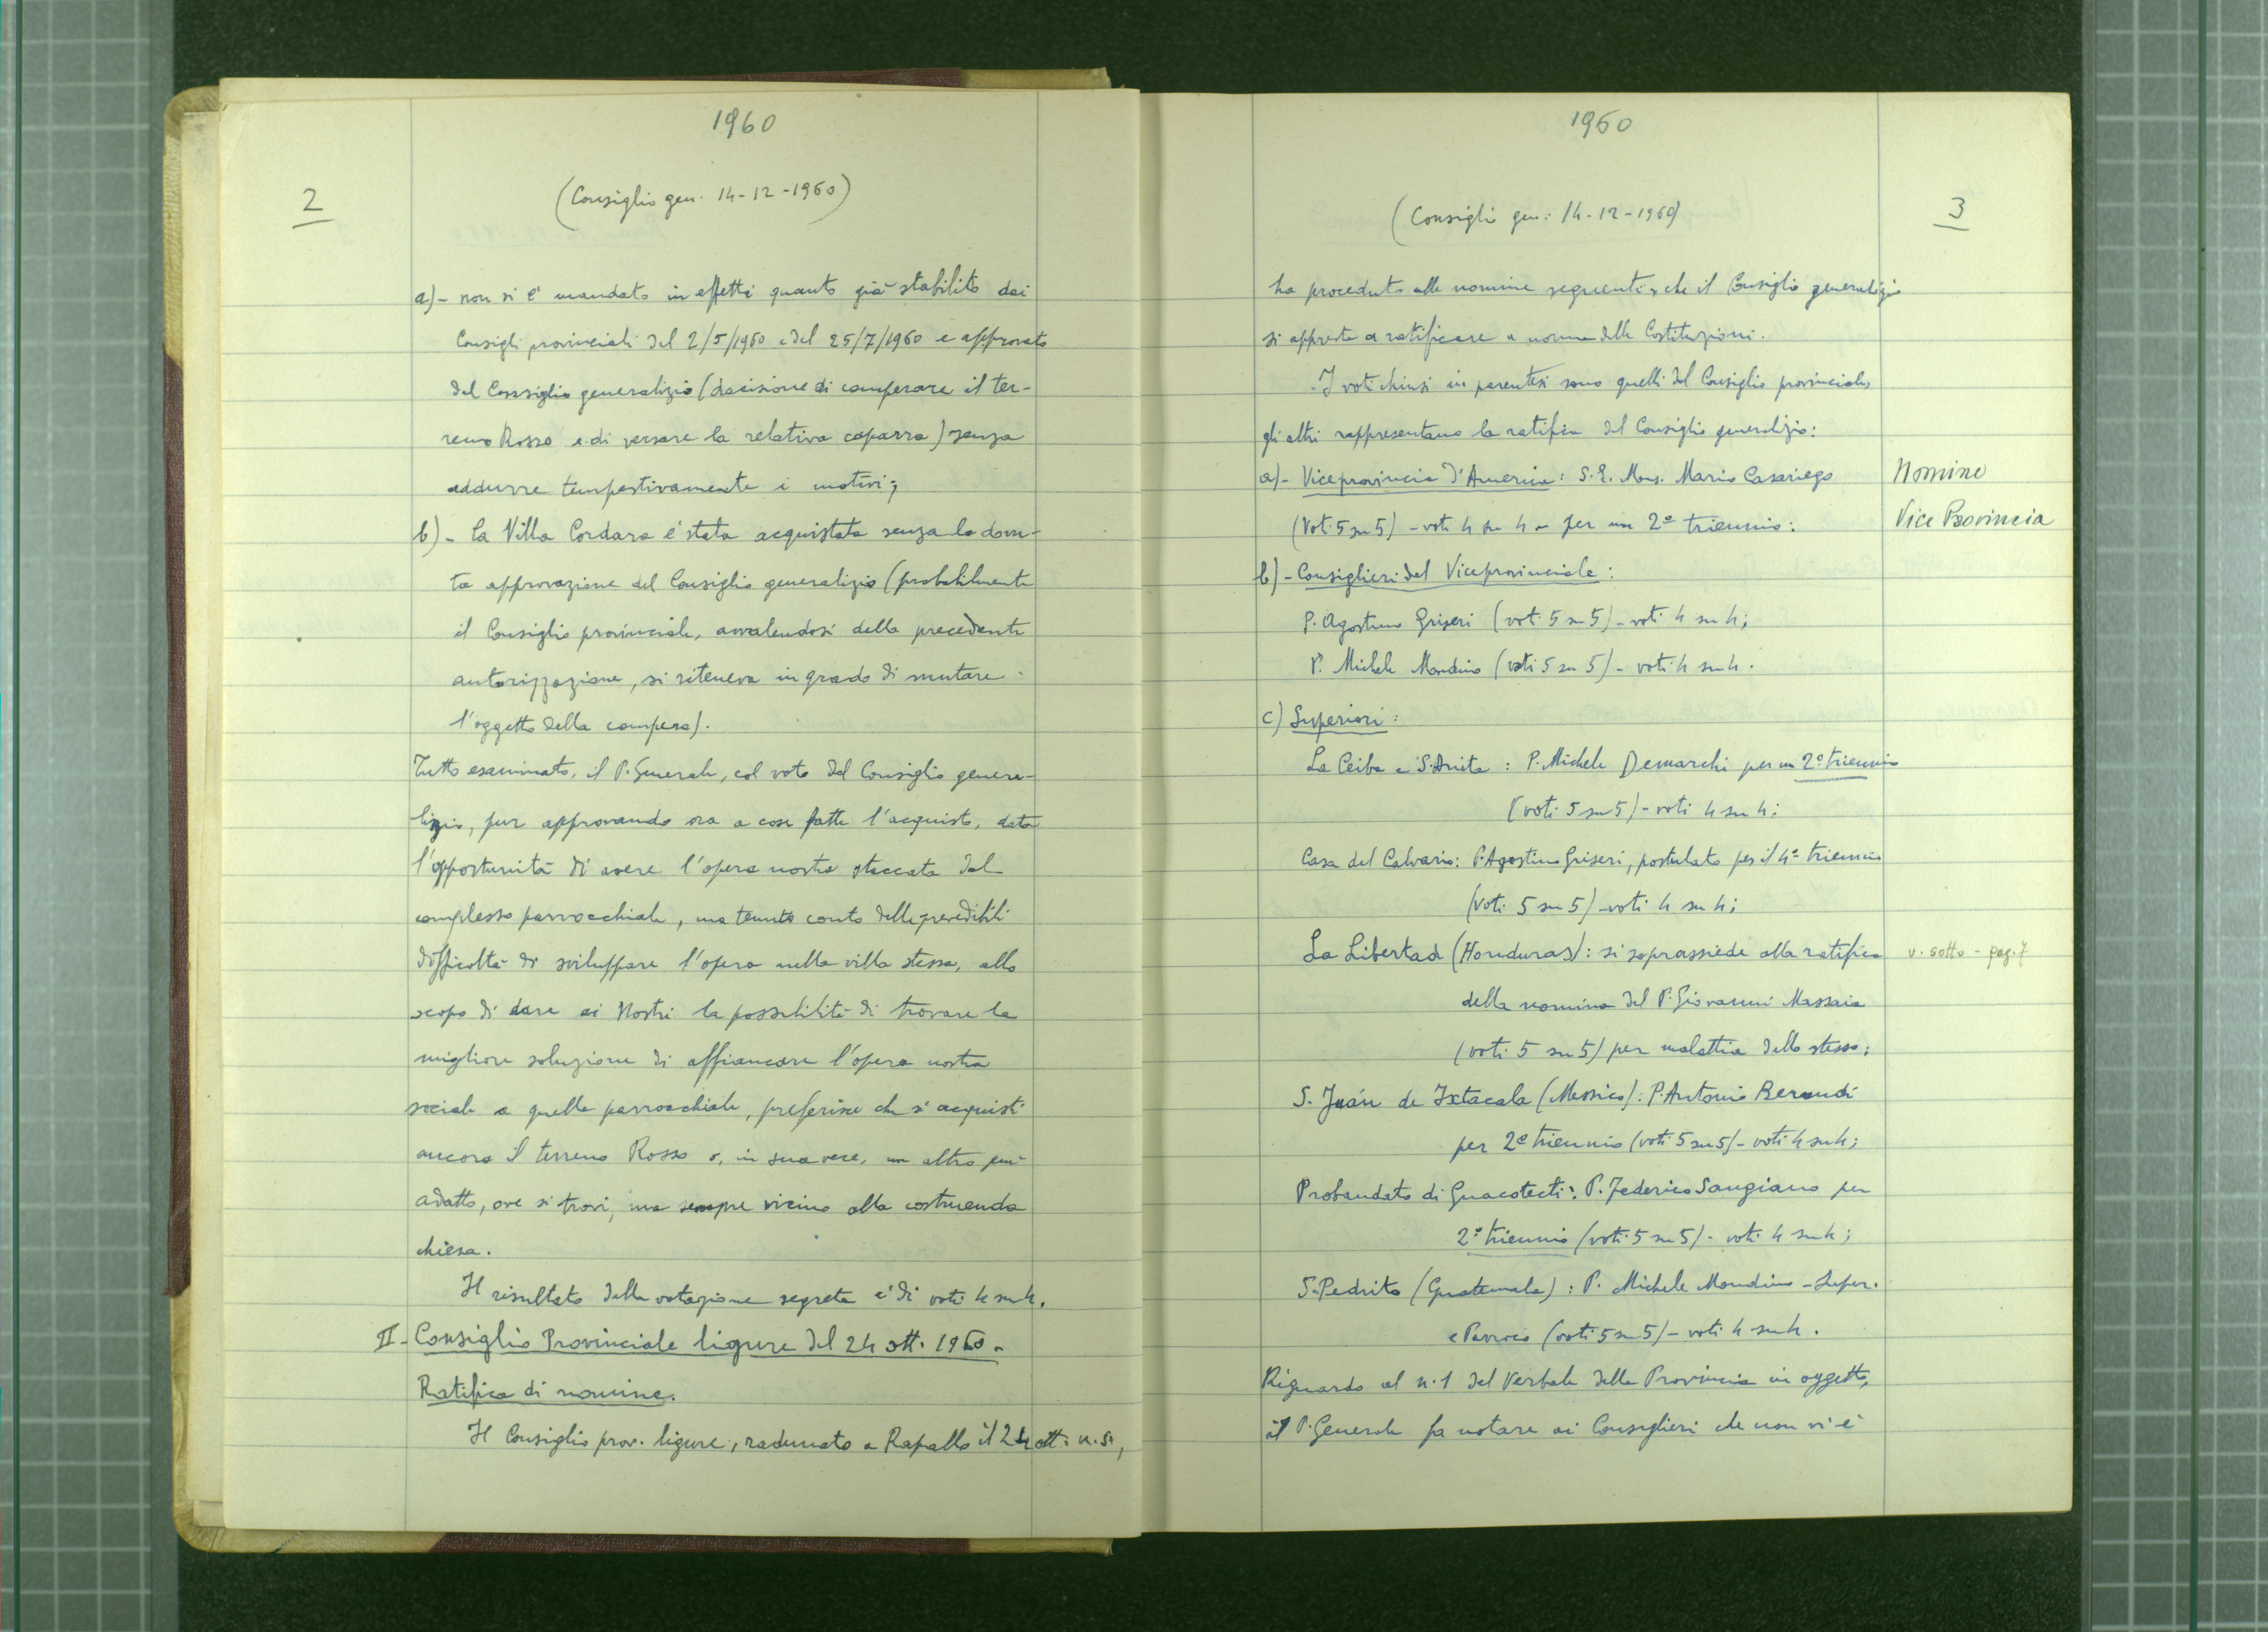 1960
2
(Consiglio gen. 14-12-1960)
a)- non si è mandato in effetti quanto già stabilito dai
Consigli provinciali del 2/5/1960 e del 25/7/1960 e approvato
dal Consiglio generalizio (decisione di comperare il ter-
reno Rosso e di versare la relativa caparra) senza
addurre tempestivamente i motivi;
b)- la Villa Cordara è stata acquistata senza la dovu-
ta approvazione del Consiglio generalizio (probabilmente
il Consiglio provinciale, avvalendosi della precedente
autorizzazione, si riteneva in grado di mutare
l'oggetto della compera).
Tutto esaminato, il P. Generale, col voto del Consiglio genera-
lizio, pur approvando ora a cose fatte l'acquisto, data
l'opportunità di avere l'opera nostra staccata dal
complesso parrocchiale, ma tenuto conto delle prevedibili
difficoltà di sviluppare l'opera nella villa stessa, allo
scopo di dare ai Nostri la possibilità di trovare la
migliore soluzione di affiancare l'opera nostra
sociale a quella parrocchiale, preferisce che si acquisti
ancora il terreno Rosso o, in sua vece, un altro più
adatto, ove si trovi, ma sempre vicino alla costruenda
chiesa.
Il risultato della votazione segreta è di voti 4 su 4.
II- Consiglio Provinciale ligure del 24 ott. 1960.
Ratifica di nomine.
Il Consiglio prov. ligure, radunato a Rapallo il 24 ott. u.s.,
1960
(Consiglio gen: 14-12-1960)
3
ha proceduto alle nomine seguenti, che il Consiglio generalizio
si appresta a ratificare a norma delle Costituzioni.
I voti chiusi in parentesi sono quelli del Consiglio provinciale,
gli altri rappresentano la ratifica del Consiglio generalizio:
a)- Viceprovincia d'America: S.E. Mons. Mario Casariego
Nomine
(Voti 5 su 5) - voti 4 su 4 - per un 2º triennio:
Vice Provincia
b)- Consiglieri del Viceprovinciale:
P. Agostino Griseri (voti 5 su 5) - voti 4 su 4;
P. Michele Mondino (voti 5 su 5) - voti 4 su 4.
c) Superiori:
La Ceiba e S. Anita: P. Michele Demarchi per un 2º triennio
(voti 5 su 5) - voti 4 su 4;
Casa del Calvario: P. Agostino Griseri, postulato per il 4º triennio
(voti 5 su 5) - voti 4 su 4;
La Libertad (Honduras): si soprassiede alla ratifica
v. sotto - pag. 7
della nomina del P. Giovanni Massaia
(voti 5 su 5) per malattia dello stesso;
S. Juán de Ixtacala (Messico): P. Antonio Beraudi
per 2º triennio (voti 5 su 5) - voti 4 su 4;
Probandato di Guacotecti: P. Federico Sangiano per
2º triennio (voti 5 su 5) - voti 4 su 4;
S. Pedrito (Guatemala): P. Michele Mondino - Super.
e Parroco (voti 5 su 5) - voti 4 su 4.
Riguardo al n. 1 del Verbale della Provincia in oggetto,
il P. Generale fa notare ai Consiglieri che non vi è